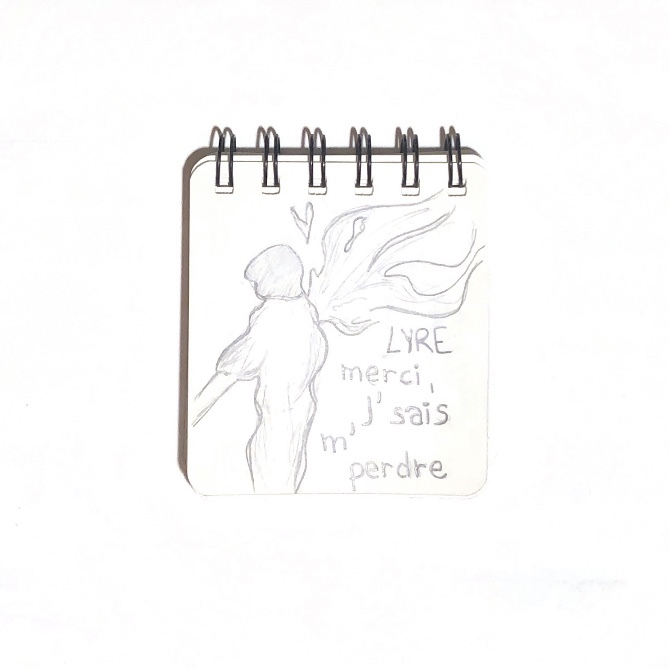 LYRE
merci,
J'sais
m'
perdre